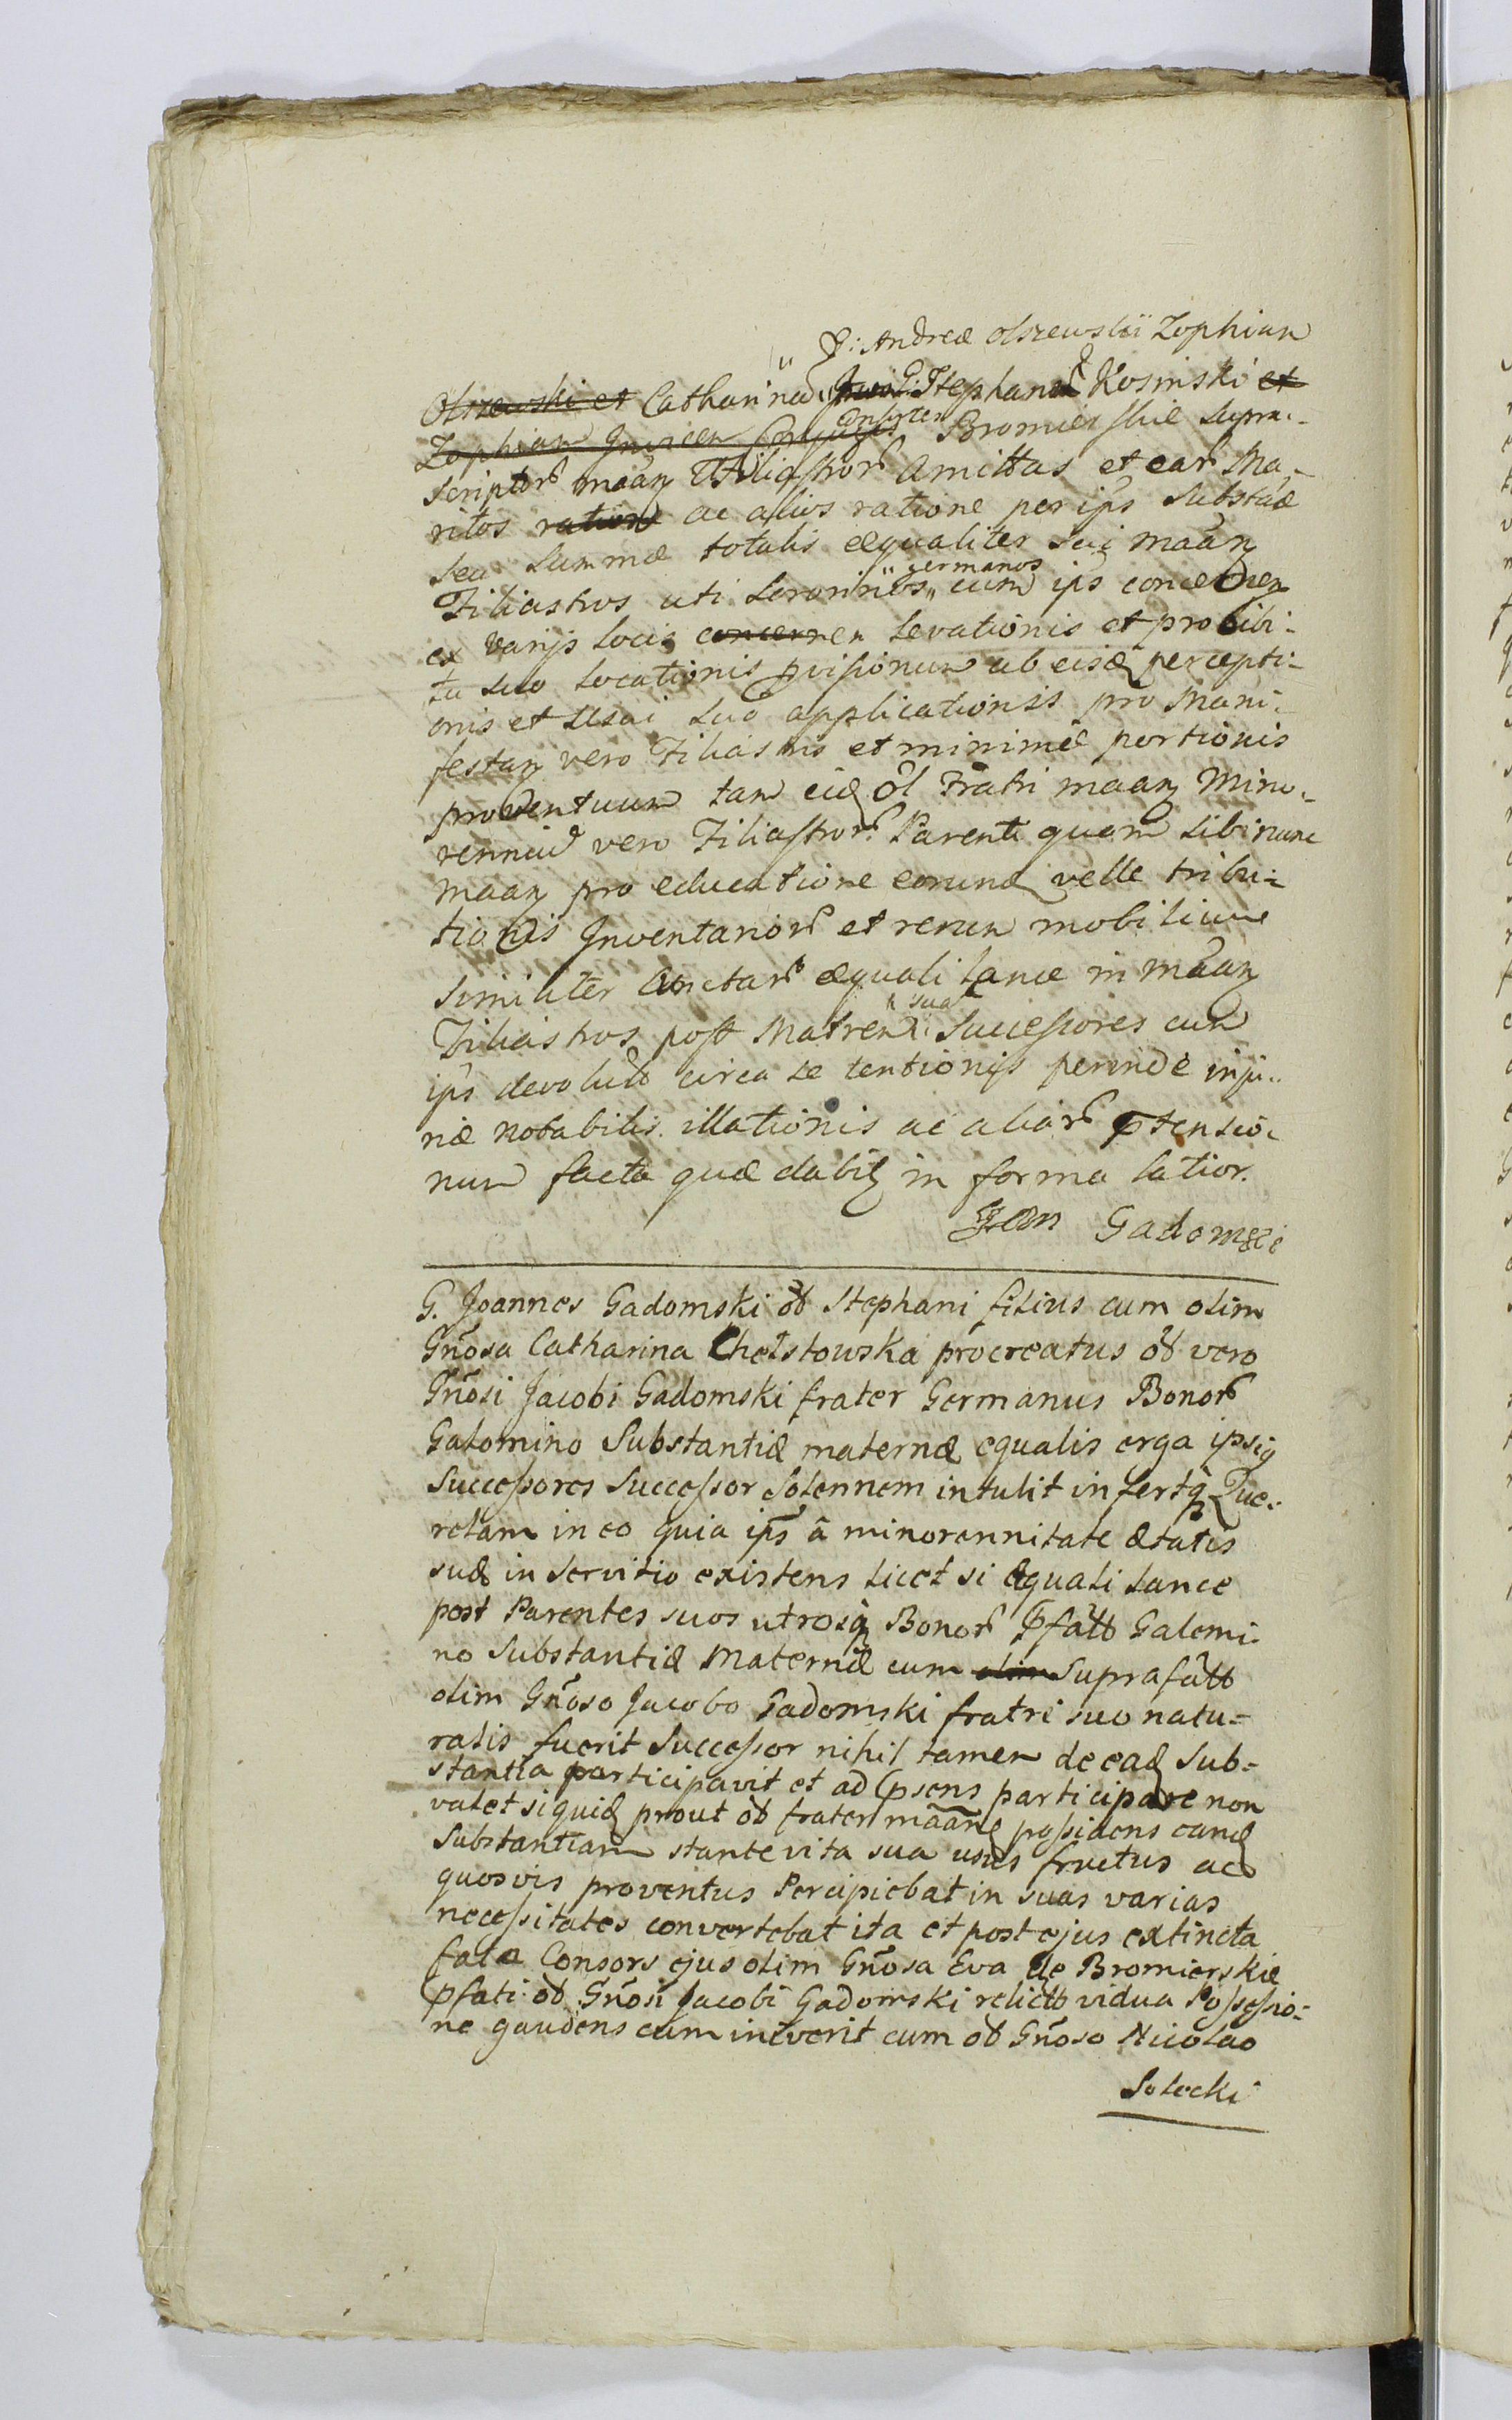 G: Andreæ Olszewskii Zophian
Olszewski et Catharinæ G: Stephani Kosinski et
Zophian Invicen Conjuges Consorten Bromierskie Supra-
Scriptor maan Filiastror Amittas et ear Ma-
ritos ratione ac alios ratione per ips Substãæ
seu Summæ totalis æqualiter sui maan
Filiastros uti Sororinos „germanos„ cum ips concernen
ex varijs locis concernen levationis et pro libi-
tu suo locationis pvisionum ab eisd percepti-
onis et Usui suo applicationis pro Mani-
festan vero Filiastris et minimè portionis
proventuum tam eid ol Fratri maan Mino-
rennium vero Filiastror Parenti quam sibi nunc
maan pro educatione eorund velle tribu-
tionis Inventarior et rerum mobilium
similiter cunctar æquali lance in maan
Filiastros post Matrem „sua„ Successores cum
ips devolut circa se tentionis perinde inju-
riæ notabilis illationis ac aliar ptensio-
num facta quæ dabit in forma latior.
Jan Gadomski
G. Joannes Gadomski ol Stephani filius cum olim
Gnõsa Catharina Chełstowska procreatus ol vero
Gnõsi Jacobi Gadomski frater Germanus Bonor
Galomino Substantiæ maternæ equalis erga ipsiq
Successores Successor Solennem intulit infertq Que-
relam in eo quia ips â minorennitate ætatis
suæ in servitio existens licet si æquali lance
post Parentes suos utrosq Bonor pfatt Galomi-
no Substantiæ Maternæ cum olim suprafatt
olim Gnõso Jacobo Gadomski fratri suo natu-
ralis fuerit Successor nihil tamen de ead Sub-
stantia participavit et ad psens participare non
valet siquid prout ol frater maane possidens eand
Substantiam stante vita sua usus fructus ac
quosvis proventus Percipiebat in suas varias
necessitates convertebat ita et post ejus extincta
fata Consors ejus olim Gnõsa Eva de Bromierskie
pfati ol Gnõsi Jacobi Gadomski relicta vidua Possessio-
ne gaudens cum iniverit cum ol Gnõso Nicolao
Solecki